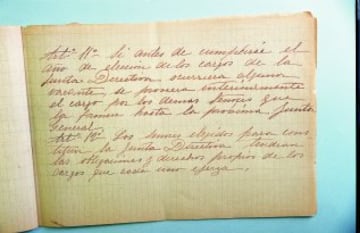 Artº 11º Si antes de cumplirse el
año de elección de los cargos de la
Junta Directiva ocurriera alguna
vacante, se provera interinamente
el cargo por los demas Señores que
la forman hasta la proxima Junta
General.
Artº 12º Los Señores elejidos para cons
tituir la Junta Directiva tendran
las obligaciones y derechos propios de los
cargos que cada uno ejerza.